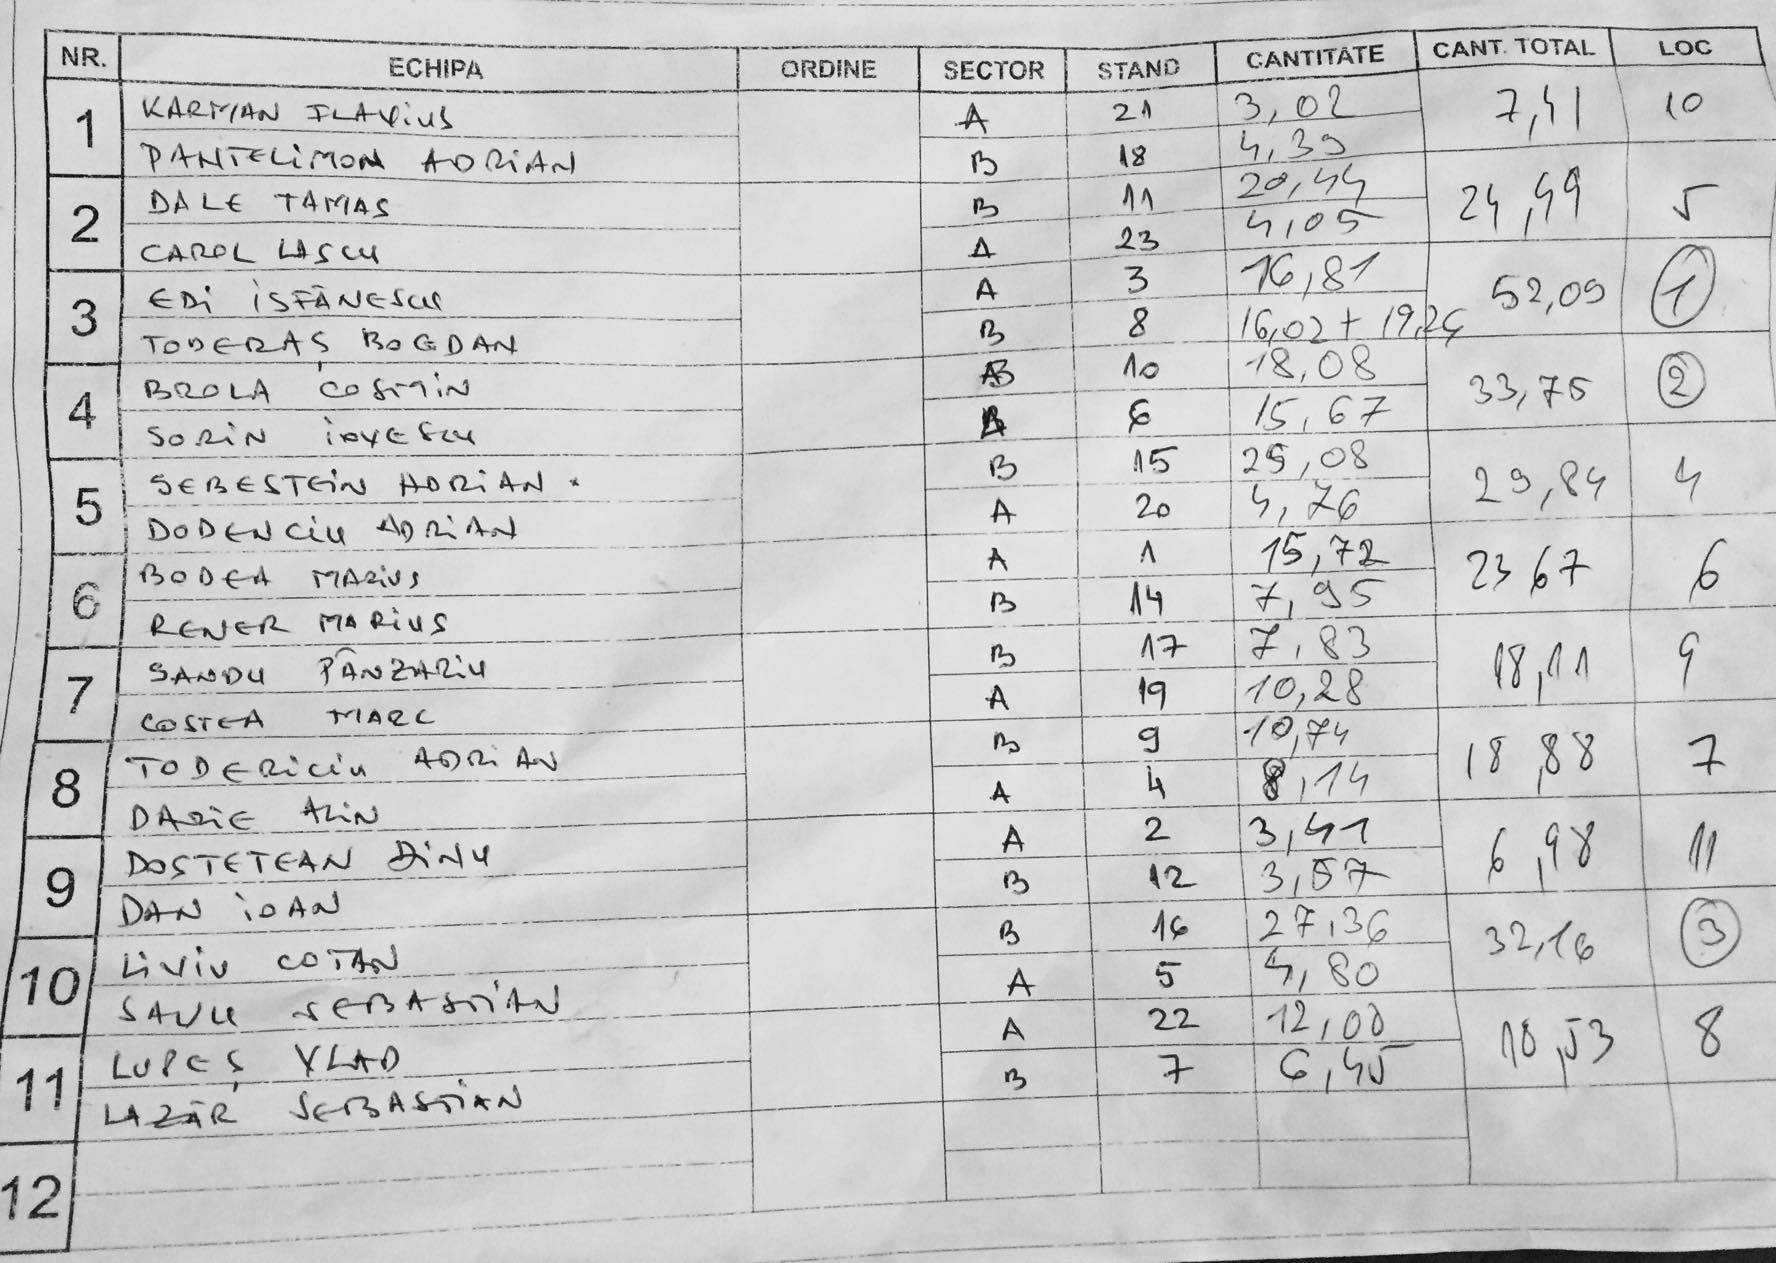 NR. ECHIPA ORDINE SECTOR STAND CANTITATE CANT. TOTAL LOC
1 KARMAN FLAVIUS A 21 3,02 7,41 10
PANTELIMON ADRIAN B 18 4,39
2 DALE TAMAS B 11 20,44 24,49 5
CAROL LASCU A 23 4,05
3 EDI ISFĂNESCU A 3 16,81 52,09 1
TODERAȘ BOGDAN B 8 16,02 + 19,26
4 BROLA COSMIN B 10 18,08 33,75 2
SORIN A 6 15,67
5 SEBESTEIN ADRIAN B 15 25,08 29,84 4
DODENCIU ADRIAN A 20 4,76
6 BODEA MARIUS A 1 15,72 23 67 6
RENER MARIUS B 14 7,95
7 SANDU PÂNZARIU B 17 7,83 18,11 9
COSTEA MARC A 19 10,28
8 TODERICIU ADRIAN B 9 10,74 18,88 7
DARIE ALIN A 4 8,14
9 DOSTETEAN DINU A 2 3,41 6,98 11
DAN IOAN B 12 3,57
10 LIVIU COTAN B 16 27,36 32,16 3
SAVU SEBASTIAN A 5 4,80
11 LUPEȘ VLAD A 22 12,08 18,53 8
LAZĂR SEBASTIAN B 7 6,45
12